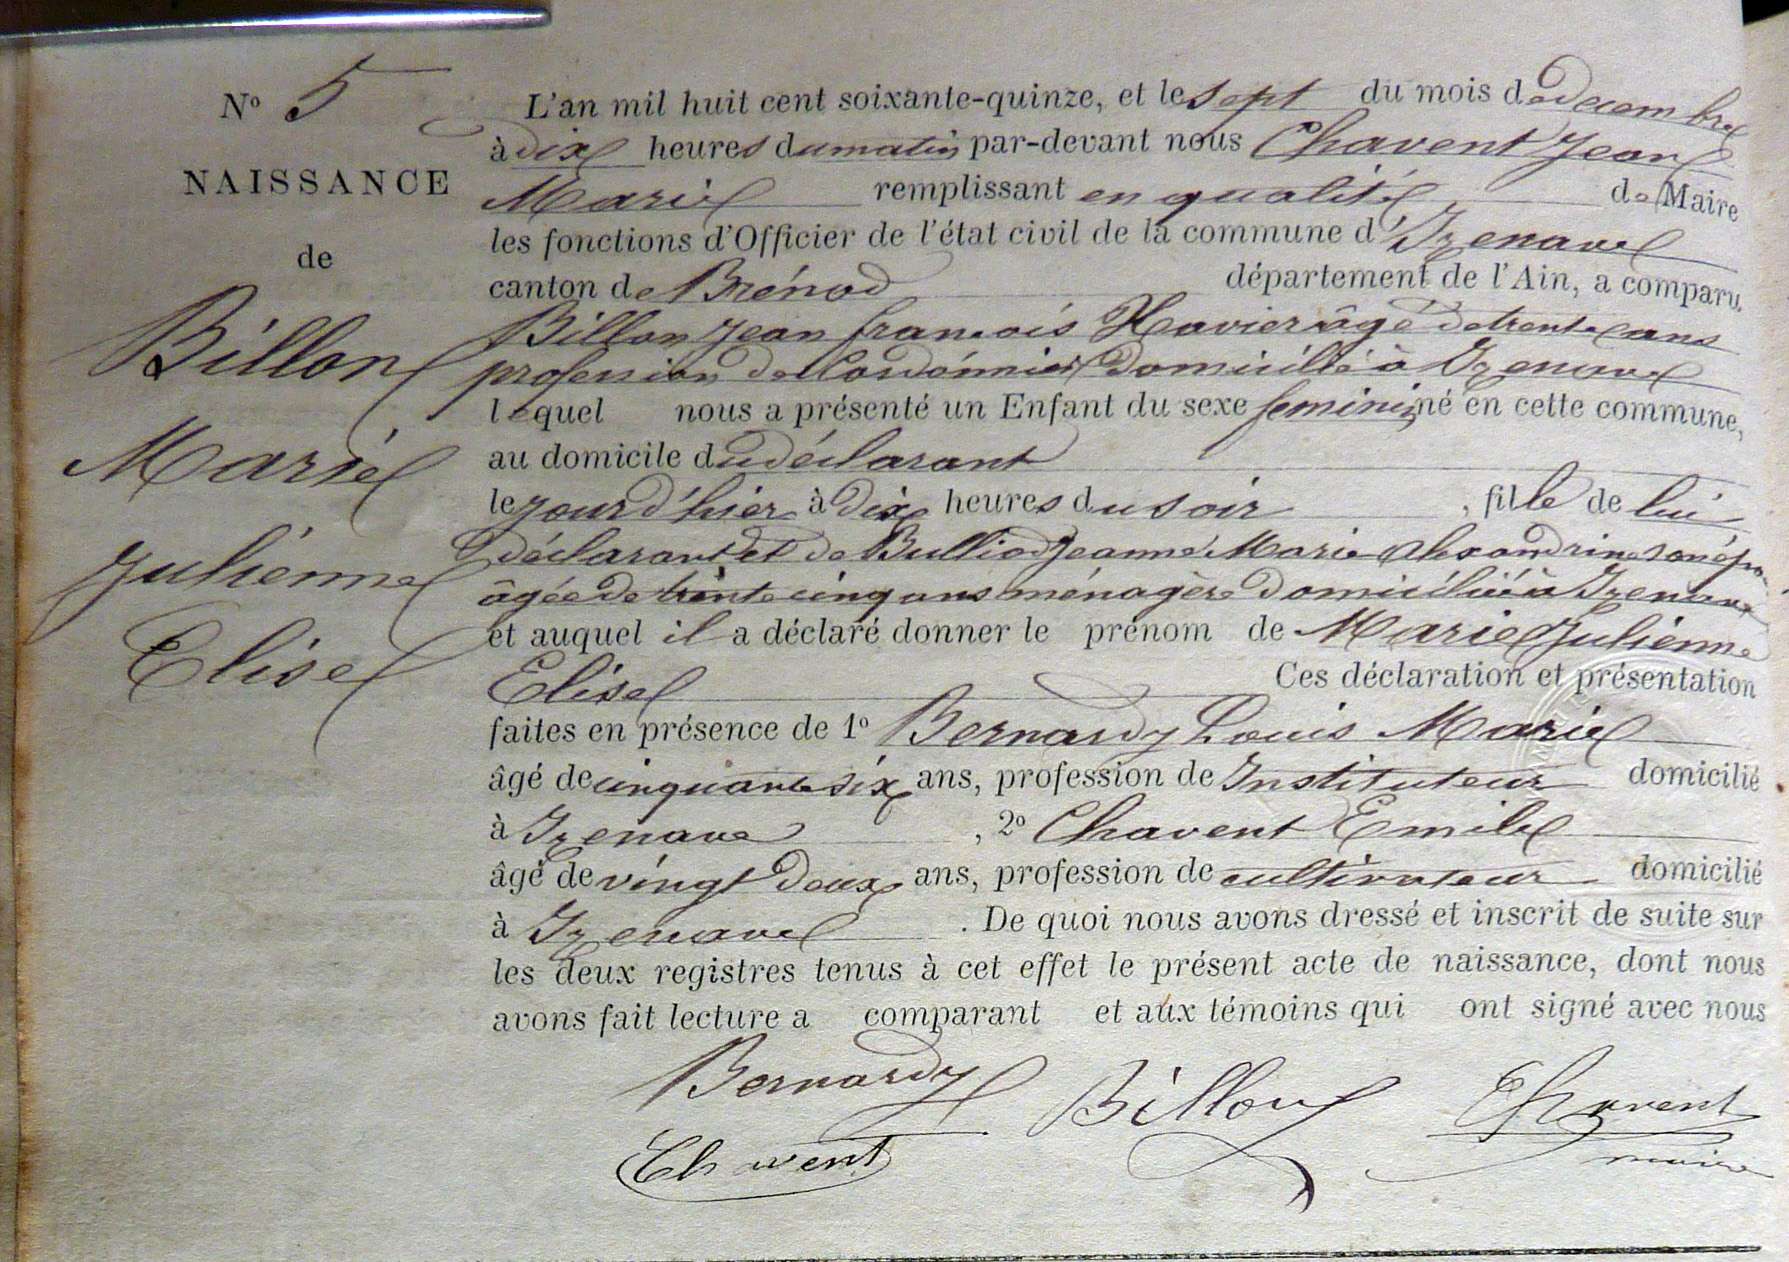 N° 5
NAISSANCE
de
Billon
Marie
Julienne
Elise
L'an mil huit cent soixante-quinze, et le sept du mois de decembre
à dix heures du matin par-devant nous Chavent Jean
Marie remplissant en qualité de Maire
les fonctions d'Officier de l'état civil de la commune d'Izenave
canton de Brénod département de l'Ain, a comparu
Billon Jean francois Xavier âgé de trente ans
profession de Cordonnier domicilié à Izenave
lequel nous a présenté un Enfant du sexe feminin né en cette commune,
au domicile du déclarant
le jour d'hier à dix heures du soir , fille de lui
déclarant et de Bulliod Jeanne Marie Alexandrine son épou
âgée de trente cinq ans ménagère domiciliée à Izenave
et auquel il a déclaré donner le prénom de Marie Julienne
Elise Ces déclaration et présentation
faites en présence de 1° Bernardy Louis Marie
âgé de cinquante six ans, profession de Instituteur domicilié
à Izenave , 2° Chavent Emile
âgé de vingt deux ans, profession de cultivateur domicilié
à Izenave . De quoi nous avons dressé et inscrit de suite sur
les deux registres tenus à cet effet le présent acte de naissance, dont nous
avons fait lecture a comparant et aux témoins qui ont signé avec nous
Bernardy Billon Chavent
Chavent maire